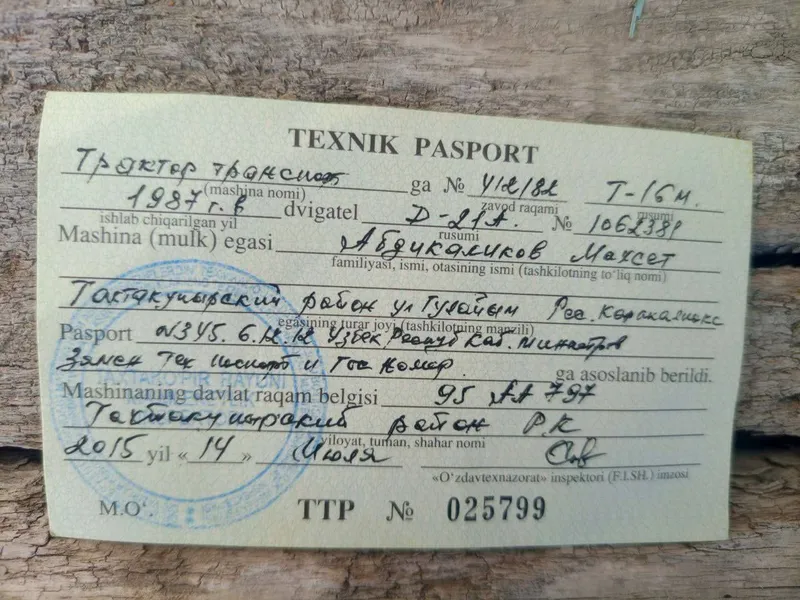 TEXNIK PASPORT
Трактор транспорт ga № 412182 Т-16м.
(mashina nomi) zavod raqami rusumi
1987 г. в dvigatel Д-21А. № 1062381
ishlab chiqarilgan yil rusumi
Mashina (mulk) egasi Абдикаликов Махсет
familiyasi, ismi, otasining ismi (tashkilotning to'liq nomi)
Тахтакупырский район ул
egasining turar joyi (tashkilotning manzili)
Pasport N345. 6.12.12 Узбек Респуб Каб. министров
Тех паспорт и Гос номер. ga asoslanib berildi.
Mashinaning davlat raqam belgisi 95 АА 797
Тахтакупырский район РК
viloyat, tuman, shahar nomi
2015 yil «14» Июля
«O'zdavtexnazorat» inspektori (F.I.SH.) imzosi
M.O'. TTP № 025799